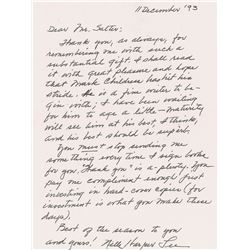 11 December '93
Dear Mr. Salter:
Thank you, as always, for
remembering me with such a
substantial gift & I shall read
it with great pleasure and hope
that Mark Childress has hit his
stride. He is a fine writer to be-
gin with, & I have been waiting
for him to age a little - maturity
will see him at his best, I think,
and his best should be superb.
You must stop sending me
something every time I sign books
for you. "Thank you" is a-plenty. You
pay me compliment enough first
investing in hard-cover copies (for
investment is what you make these
days).
Best of the season to you
and yours, Nelle Harper Lee